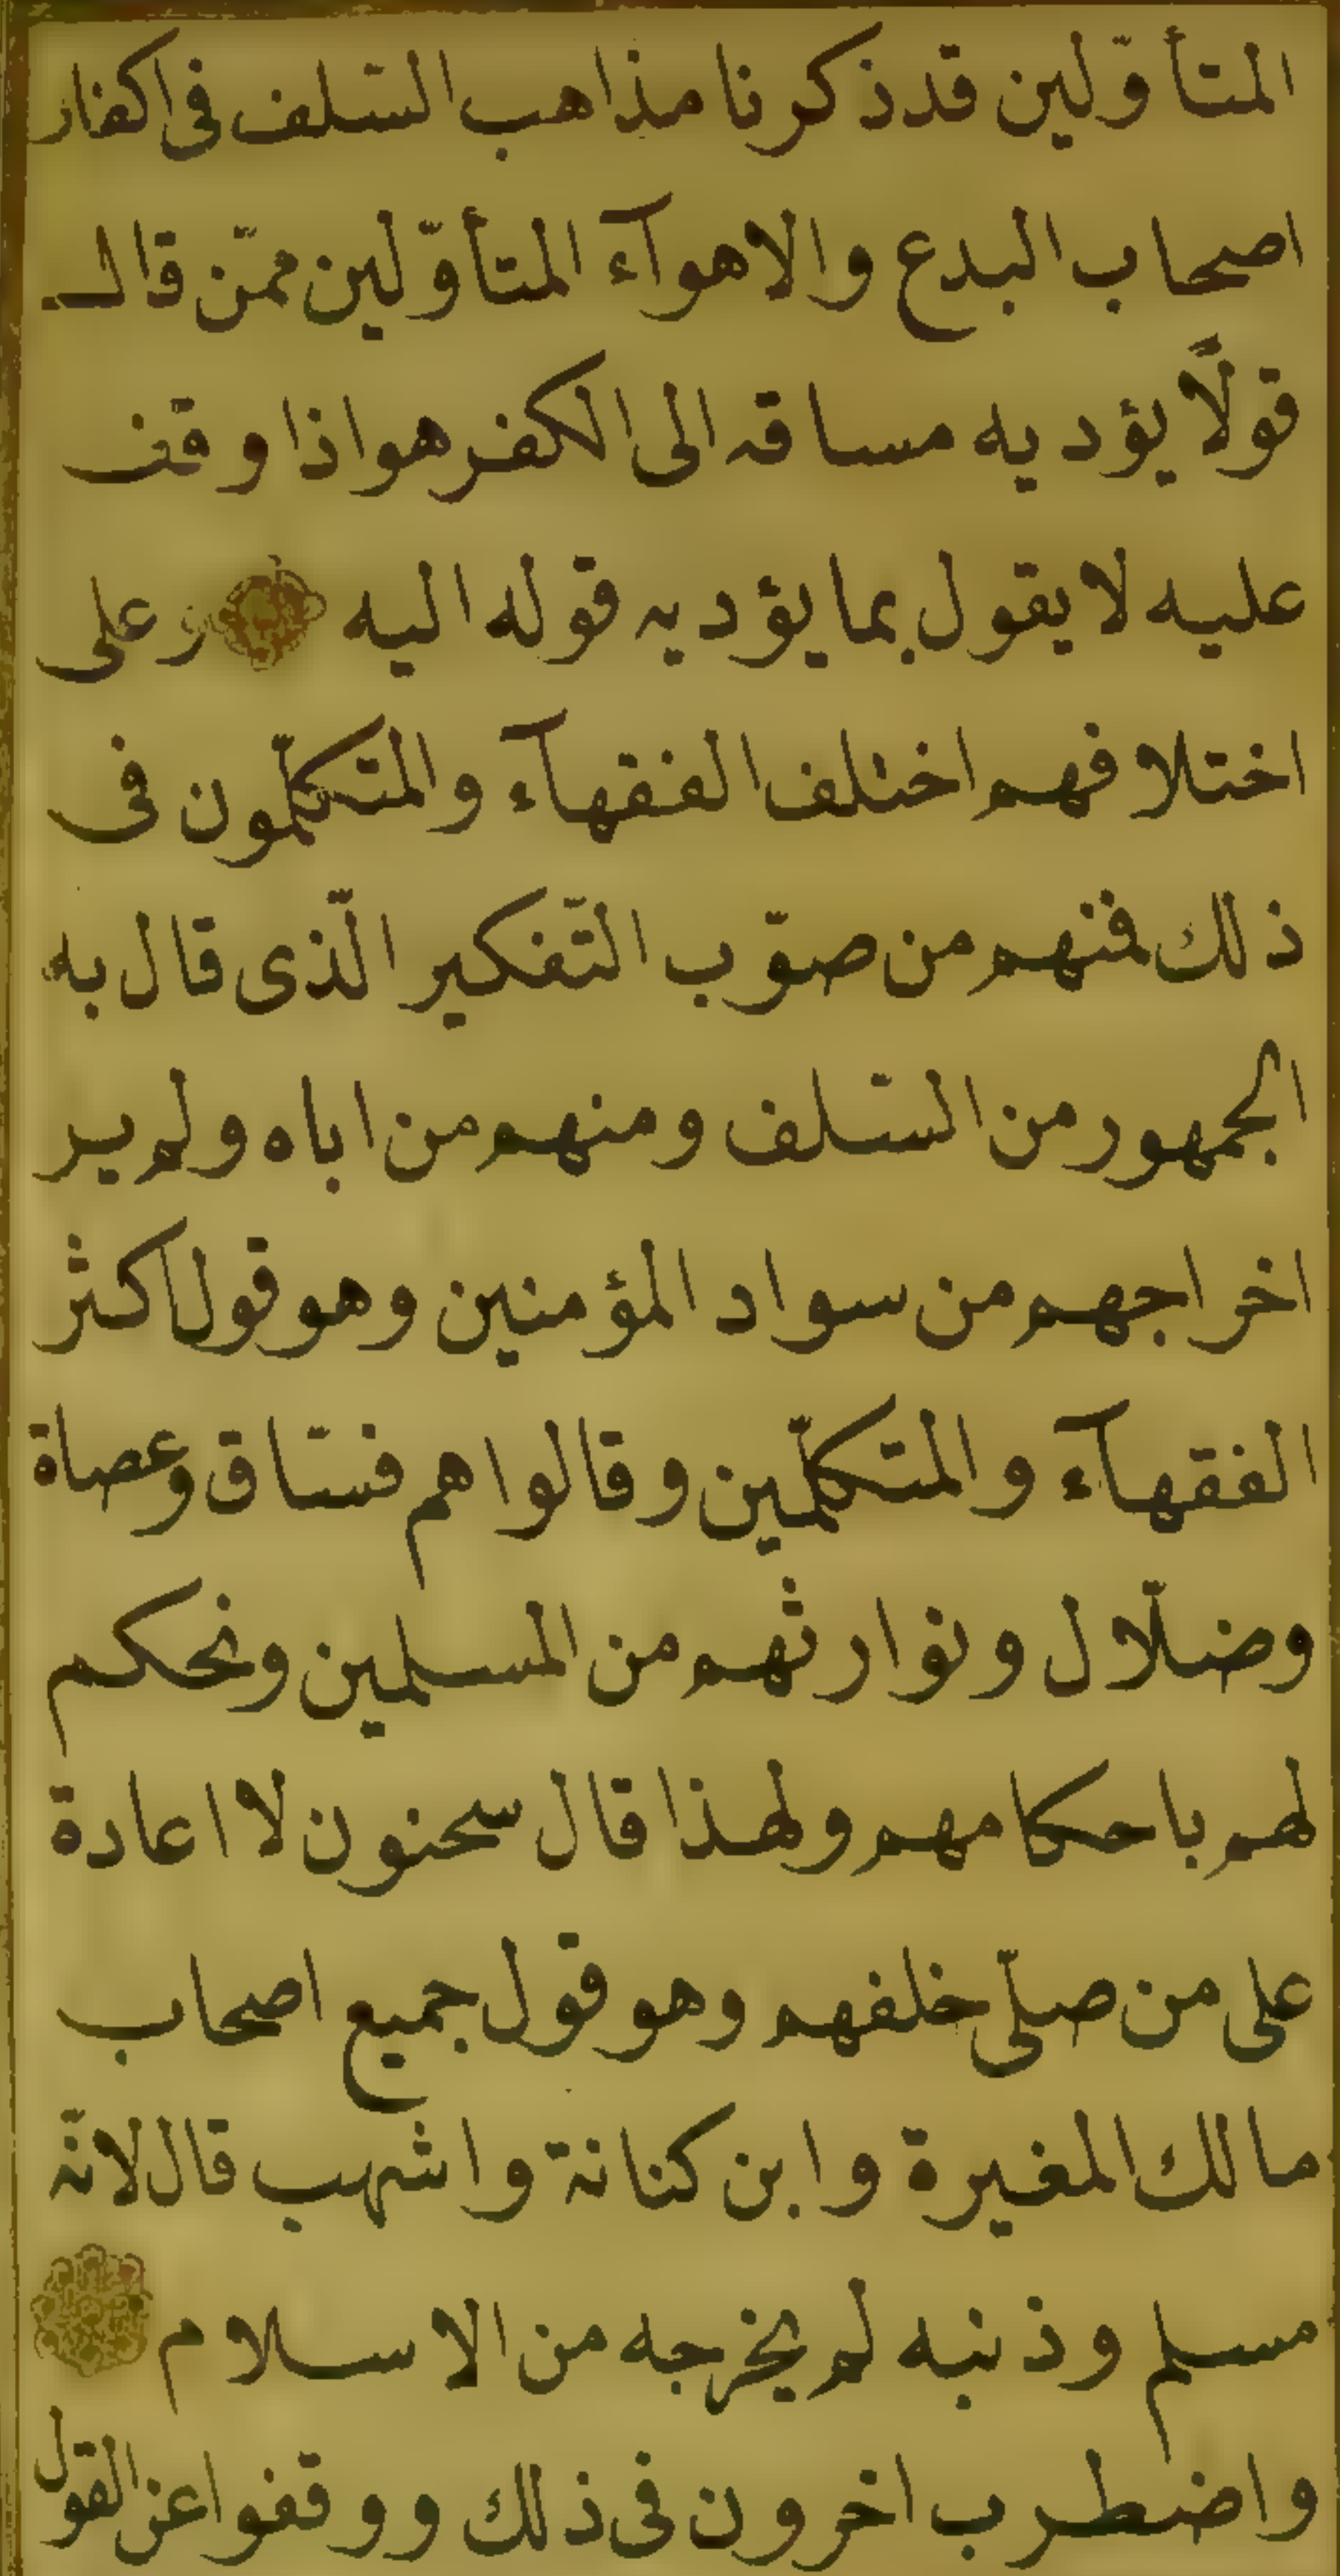 المتأوّلين قد ذكرنا مذاهب السّلف فى اكفار
اصحاب البدع والاهوآء المتأوّلين ممّن قال
قولًا يؤديه مساقه الى الكفر هو اذا وقف
عليه لا يقول بما يؤديه قوله اليه وعلى
اختلافهم اختلف الفقهآء والمتكلّمون فى
ذلك فمنهم من صوّب التّفكير الّذى قال به
الجمهور من السّلف ومنهم من اباه ولم ير
اخراجهم من سواد المؤمنين وهو قول اكثر
الفقهآء والمتكلّمين وقالوا هم فسّاق وعصاة
وضلّال ونوارثهم من المسلمين ونحكم
لهم باحكامهم ولهذا قال سحنون لا اعادة
على من صلّى خلفهم وهو قول جميع اصحاب
مالك المغيرة وابن كنانة واشهب قال لانّه
مسلم وذنبه لم يخرجه من الاسلام
واضطرب اخرون فى ذلك ووقفوا عن القول